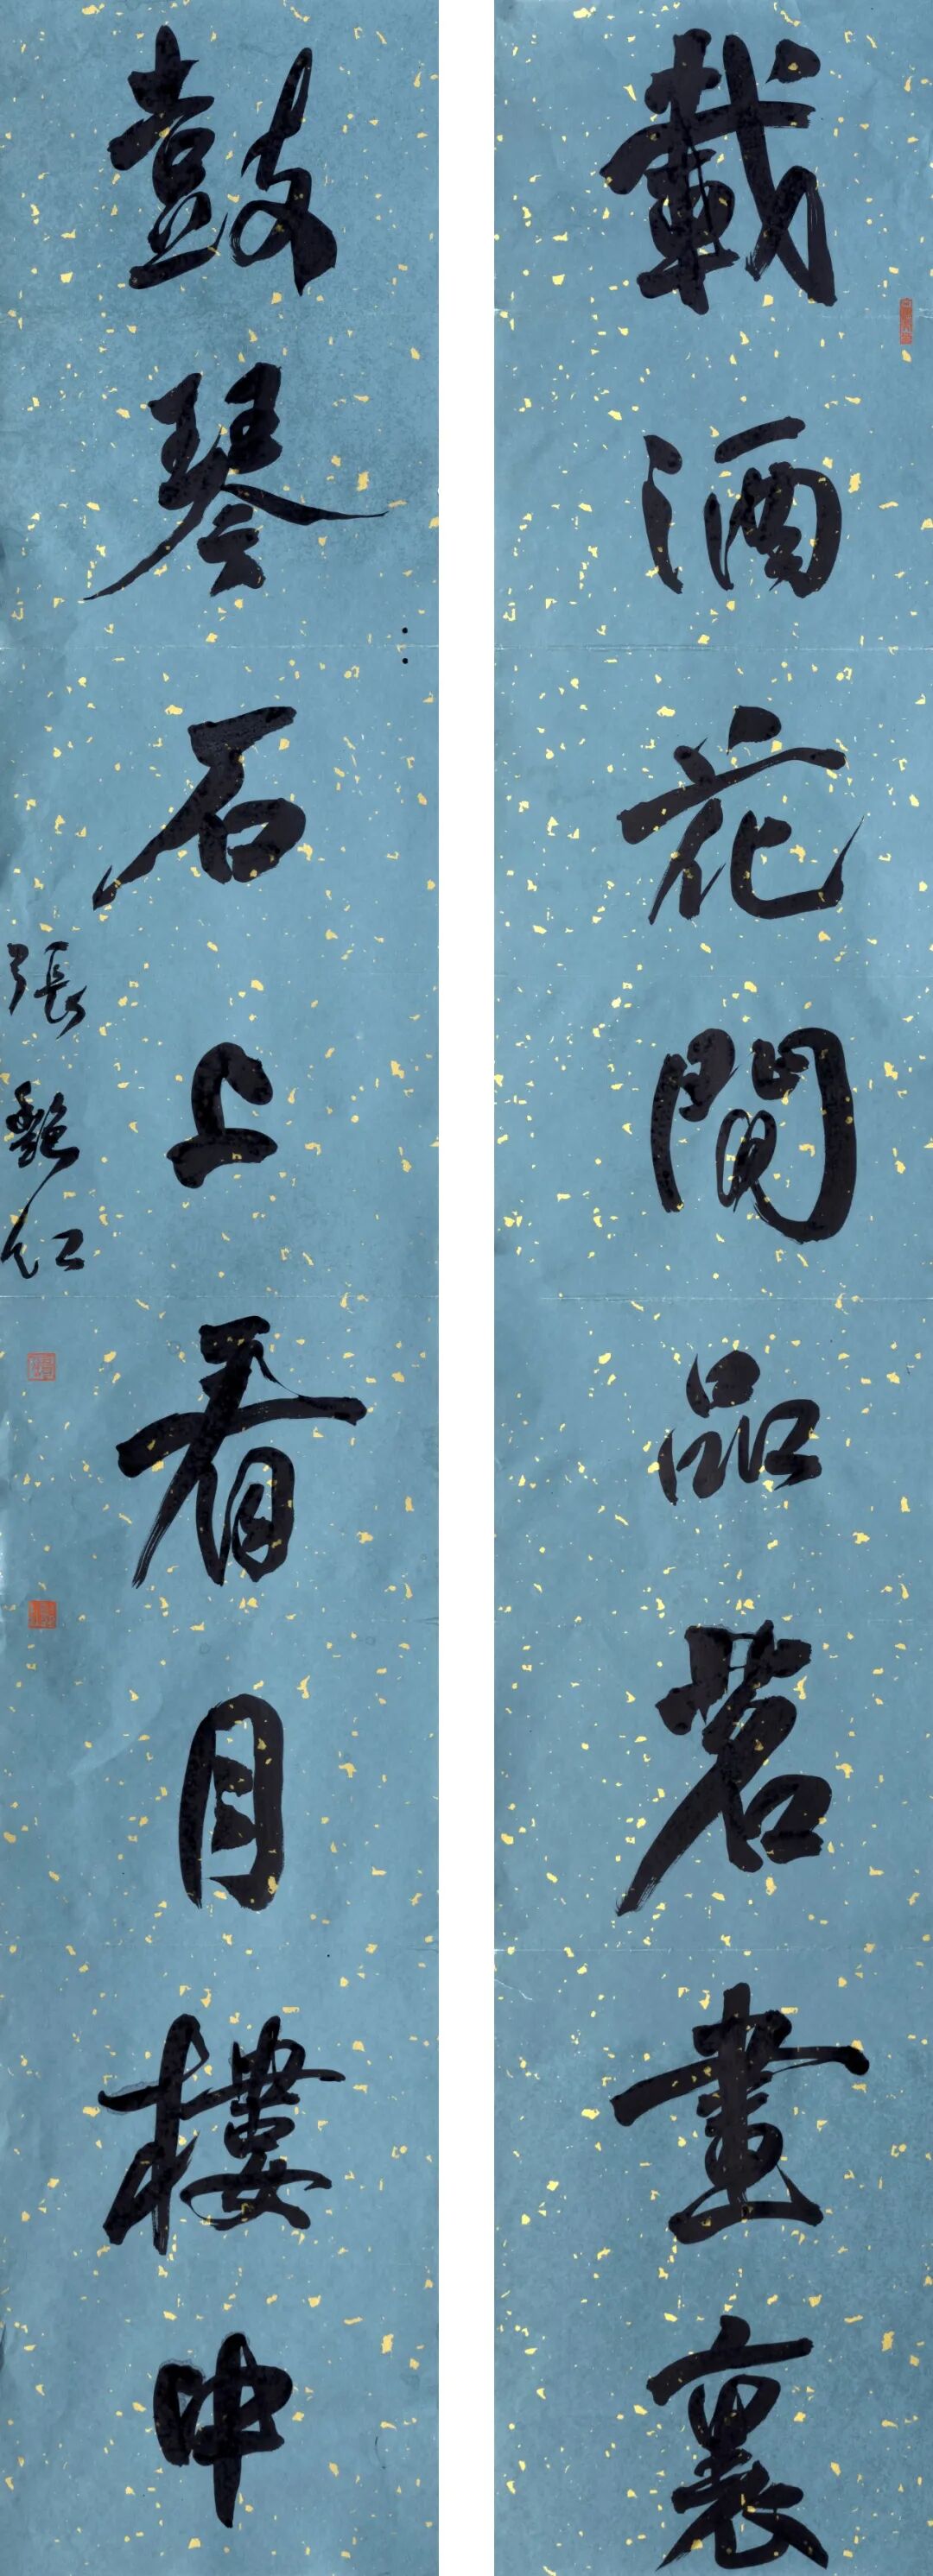 載酒花間品茗畫裏
鼓琴石上看月樓中
張艷仁